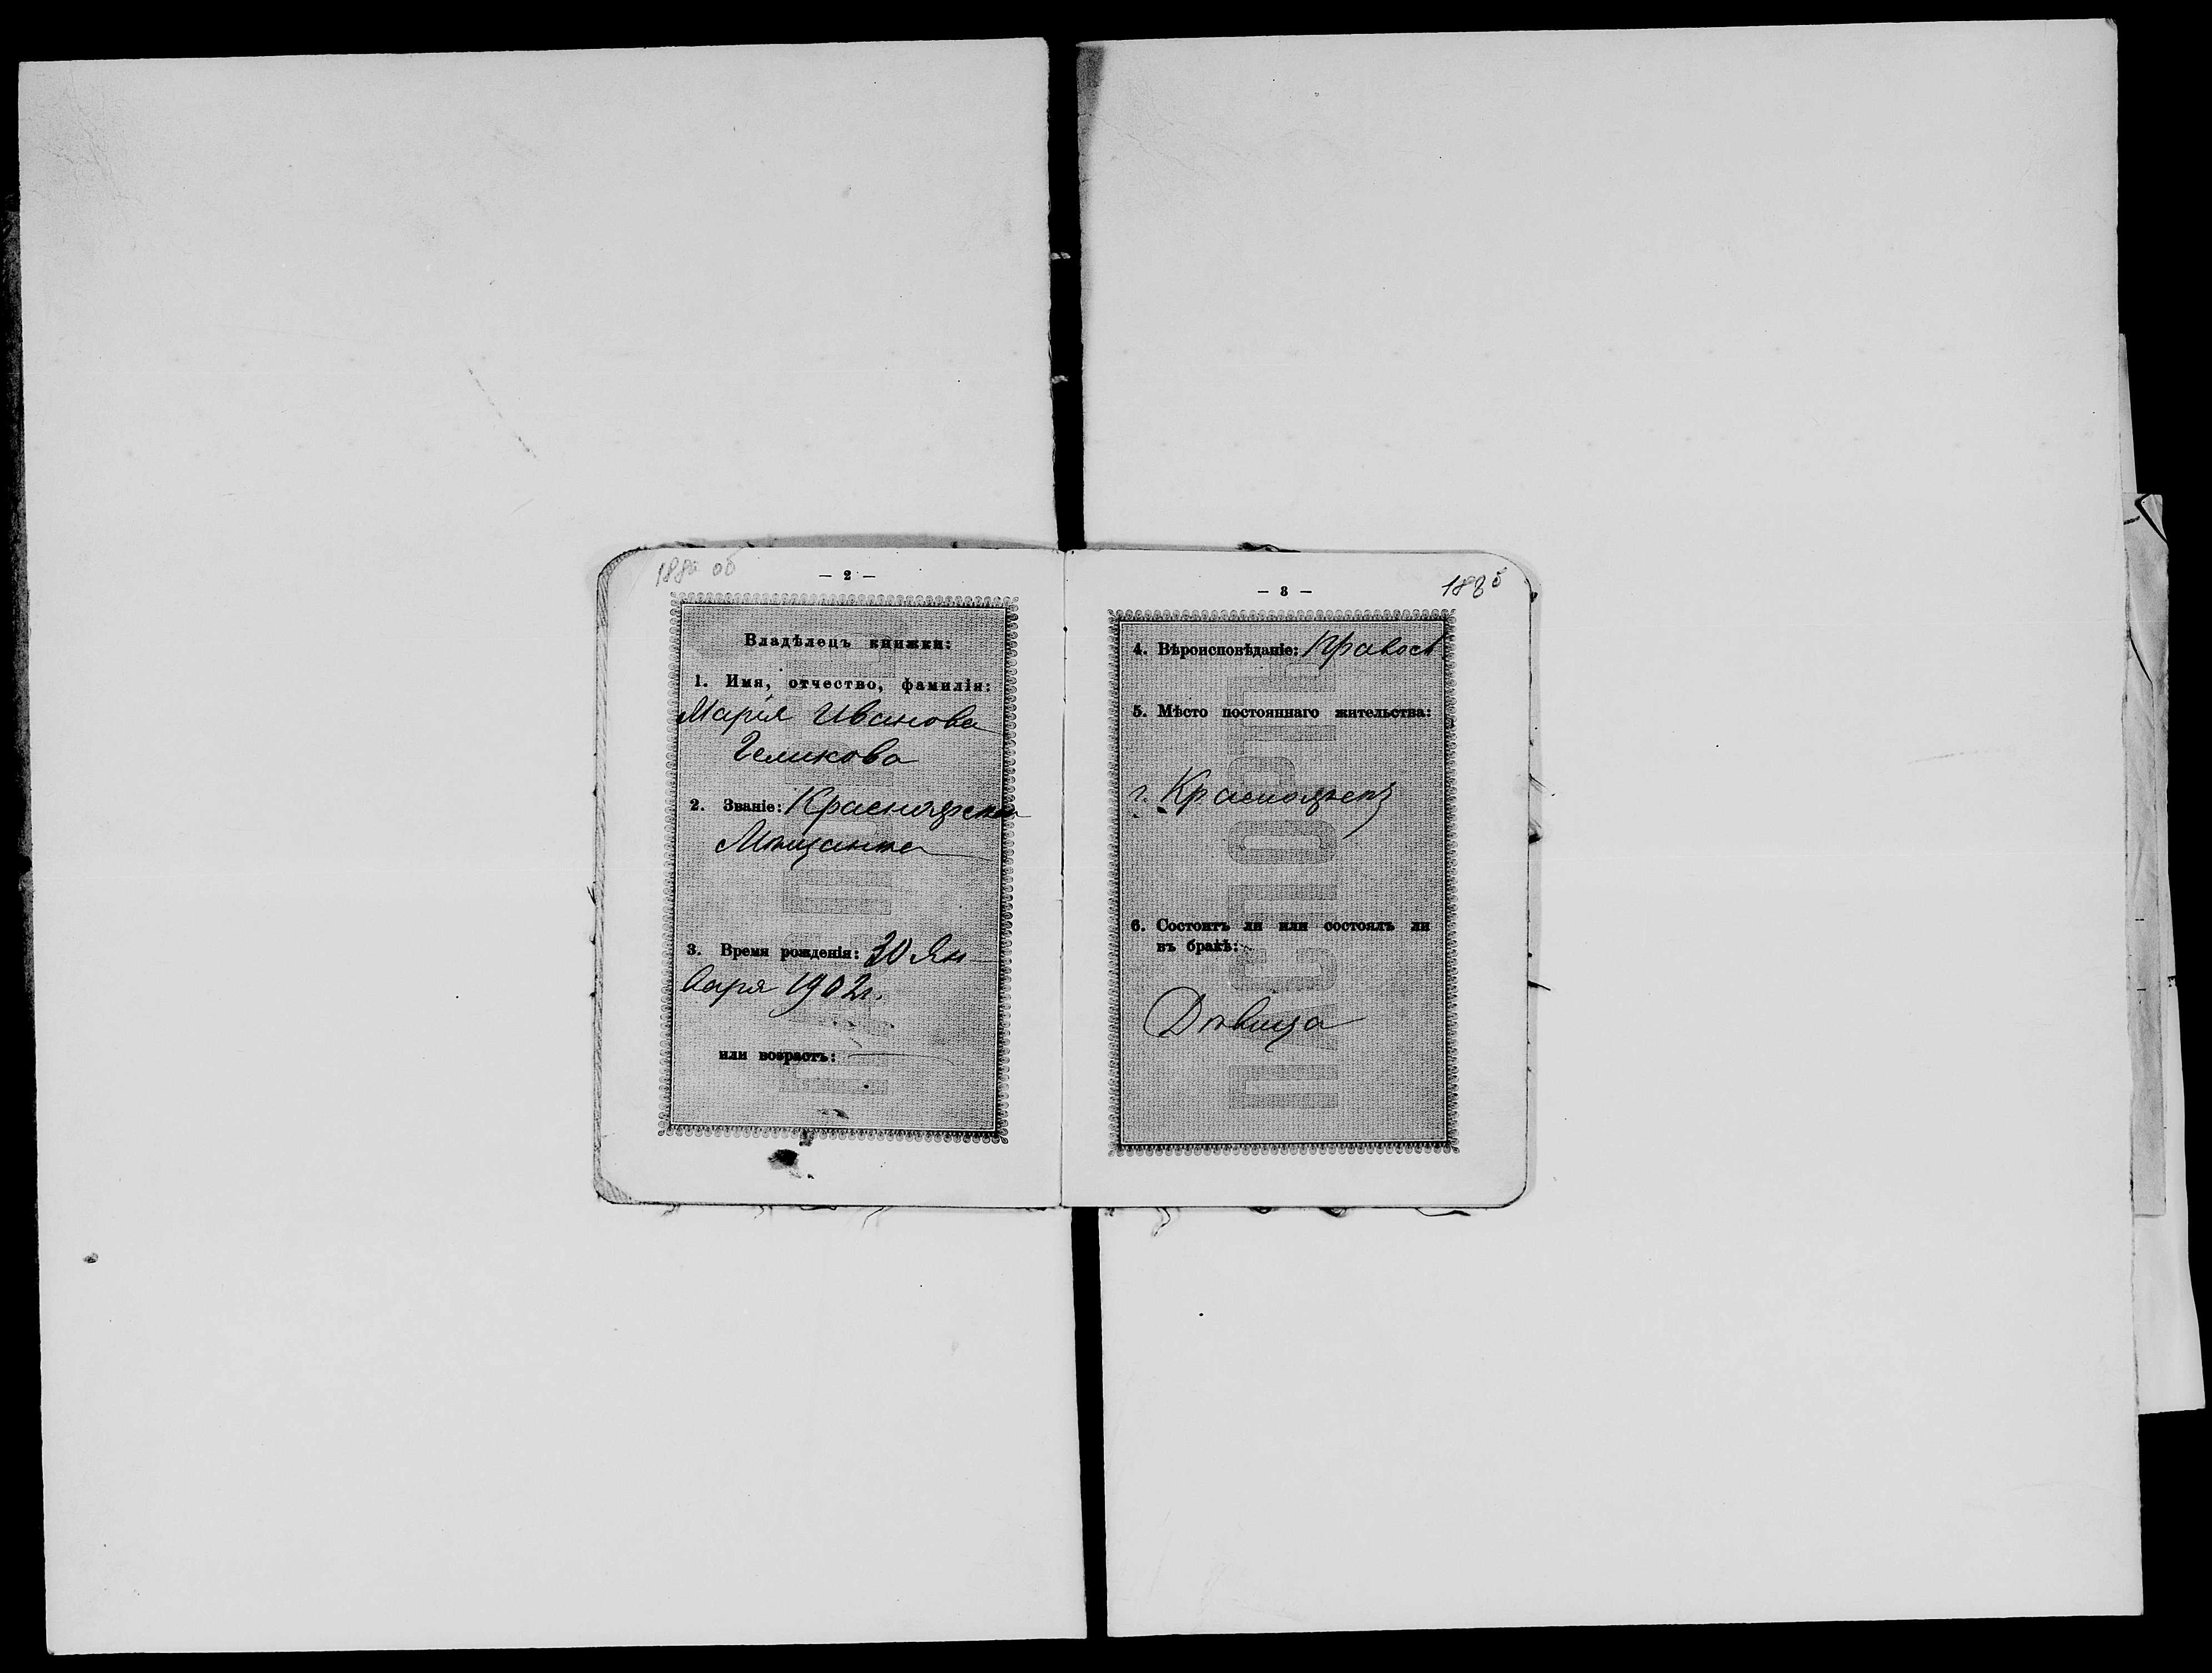 — 2 —
Владѣлецъ книжки:
1. Имя, отчество, фамилія:
Марія Иванова
Геликова
2. Званіе: Красноярская
Мѣщанка
3. Время рожденія: 30 Ян-
варя 1902 г.
или возрастъ:
— 3 —
4. Вѣроисповѣданіе: Правосл.
5. Мѣсто постояннаго жительства:
г. Красноярскъ
6. Состоитъ ли или состоялъ ли
въ бракѣ:
Дѣвица
ПАСПОРТ